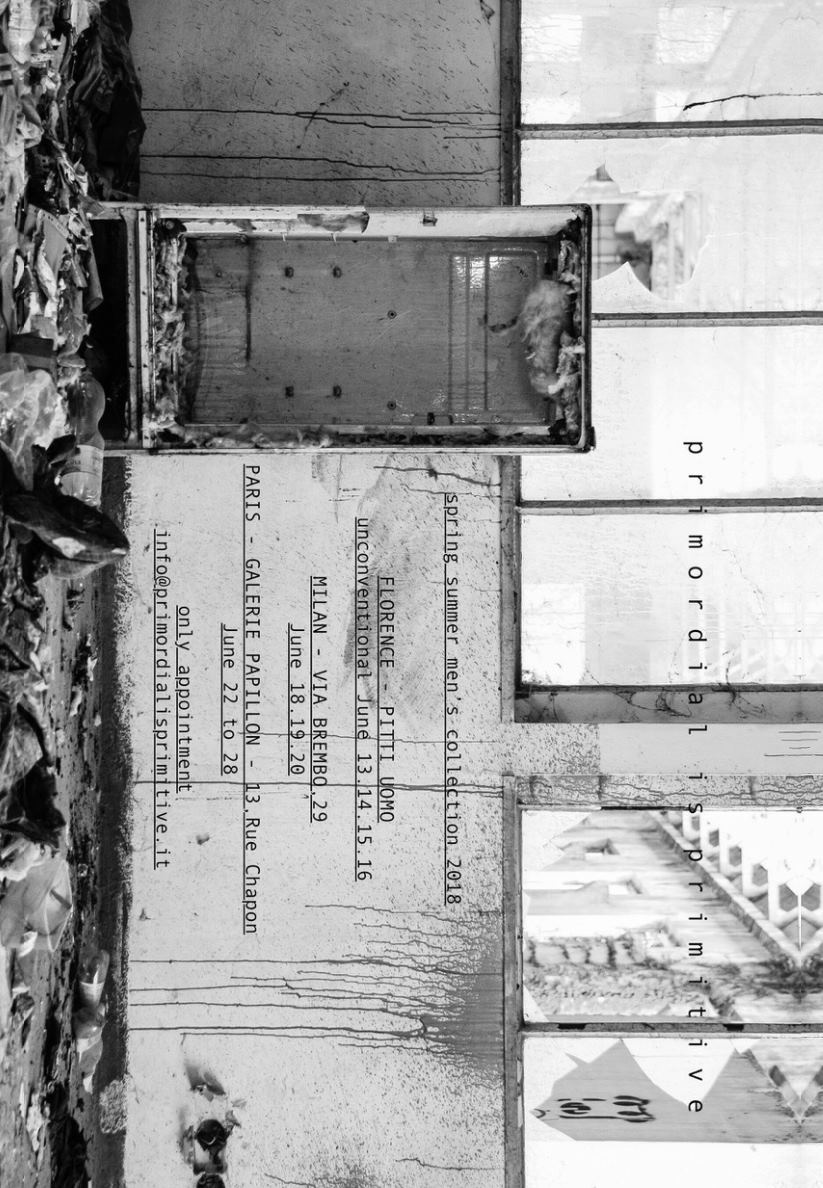 primordial is primitive
spring summer men's collection 2018
FLORENCE - PITTI UOMO
unconventional June 13.14.15.16
MILAN - VIA BREMBO,29
June 18.19.20
PARIS - GALERIE PAPILLON - 13,Rue Chapon
June 22 to 28
only appointment
info@primordialisprimitive.it